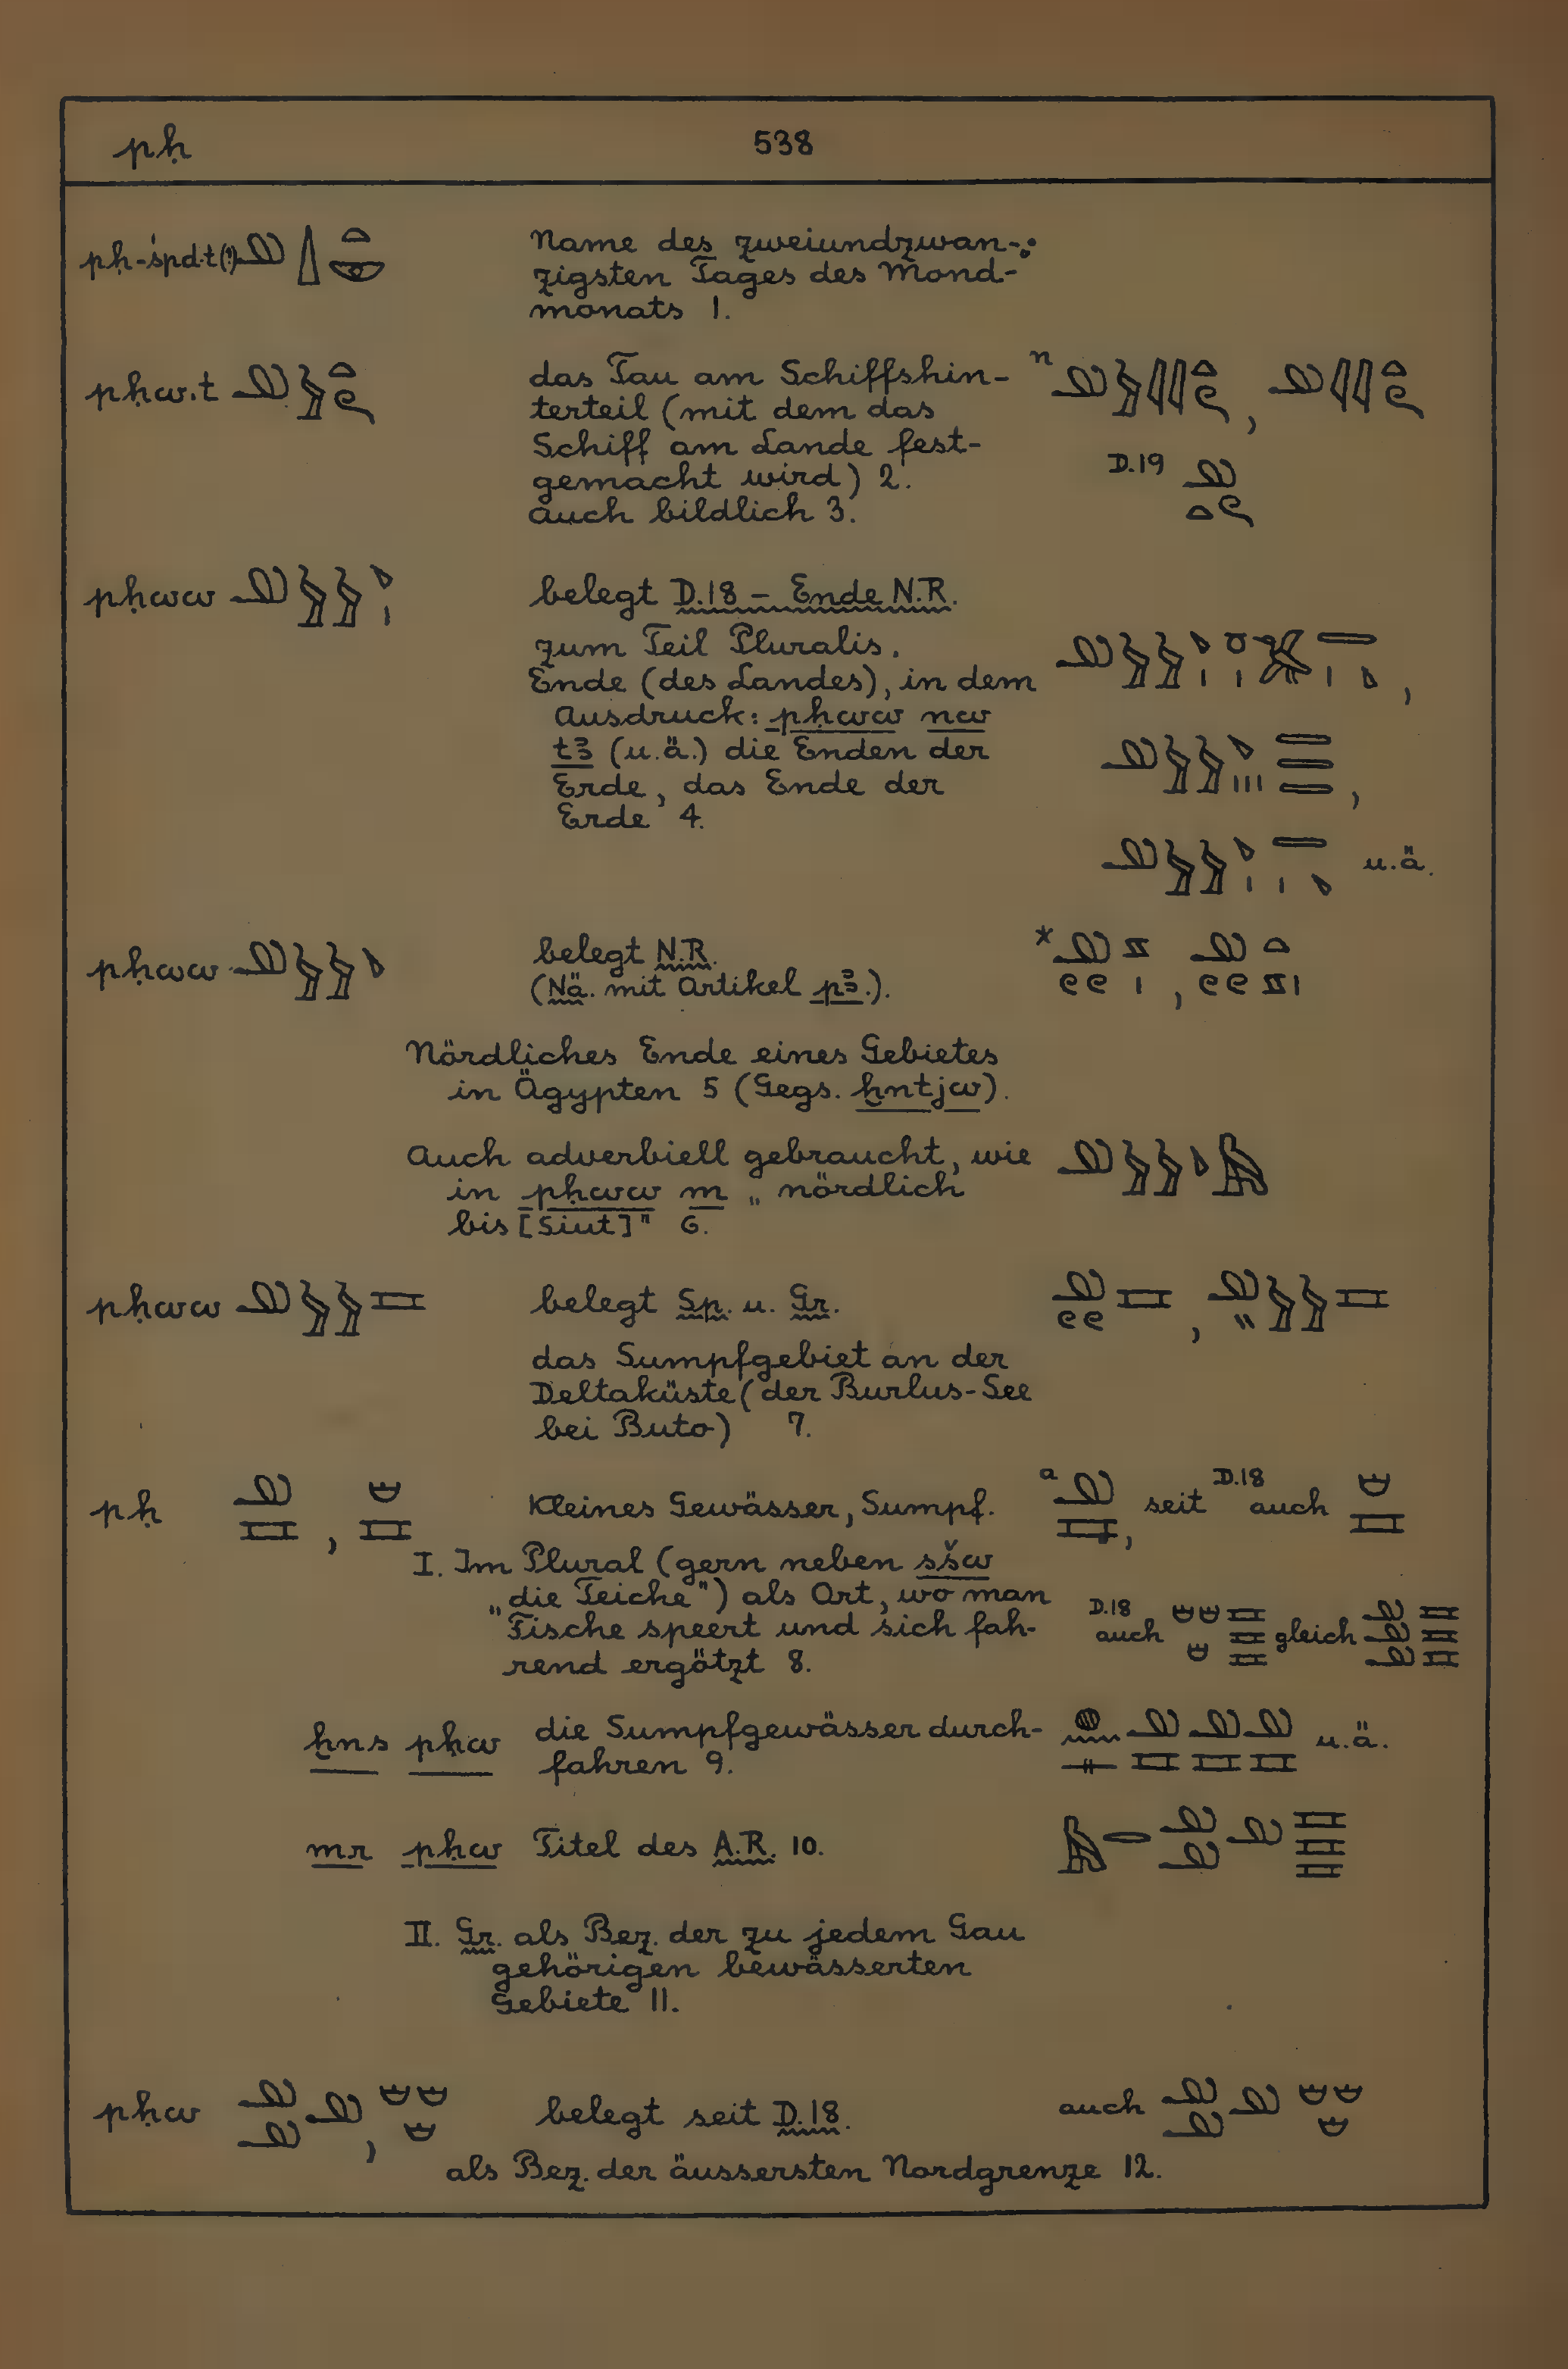 pḥ 538
pḥ-śpd.t(?) Name des zweiundzwan-
zigsten Tages des Mond-
monats 1.
pḥw.t das Tau am Schiffshin-
terteil (mit dem das
Schiff am Lande fest-
gemacht wird) 2. D.19
auch bildlich 3.
pḥww belegt D.18 – Ende N.R.
zum Teil Pluralis.
Ende (des Landes), in dem
Ausdruck: pḥww nw
tꜣ (u.ä.) die Enden der
Erde, das Ende der
Erde 4.
u.ä.
pḥww belegt N.R.
(Nä. mit Artikel pꜣ.).
Nördliches Ende eines Gebietes
in Ägypten 5 (Gegs. ḫntjw).
Auch adverbiell gebraucht, wie
in pḥww m „nördlich
bis [Siut]" 6.
pḥww belegt Sp. u. Gr.
das Sumpfgebiet an der
Deltaküste (der Burlus-See
bei Buto) 7.
pḥ Kleines Gewässer, Sumpf. a , seit D.18 auch
I. Im Plural (gern neben sšw
„die Teiche") als Ort, wo man
Fische speert und sich fah- D.18 auch gleich
rend ergötzt 8.
ḫns pḥw die Sumpfgewässer durch- u.ä.
fahren 9.
mr pḥw Titel des A.R. 10.
II. Gr. als Bez. der zu jedem Gau
gehörigen bewässerten
Gebiete 11.
pḥw belegt seit D.18. auch
als Bez. der äussersten Nordgrenze 12.